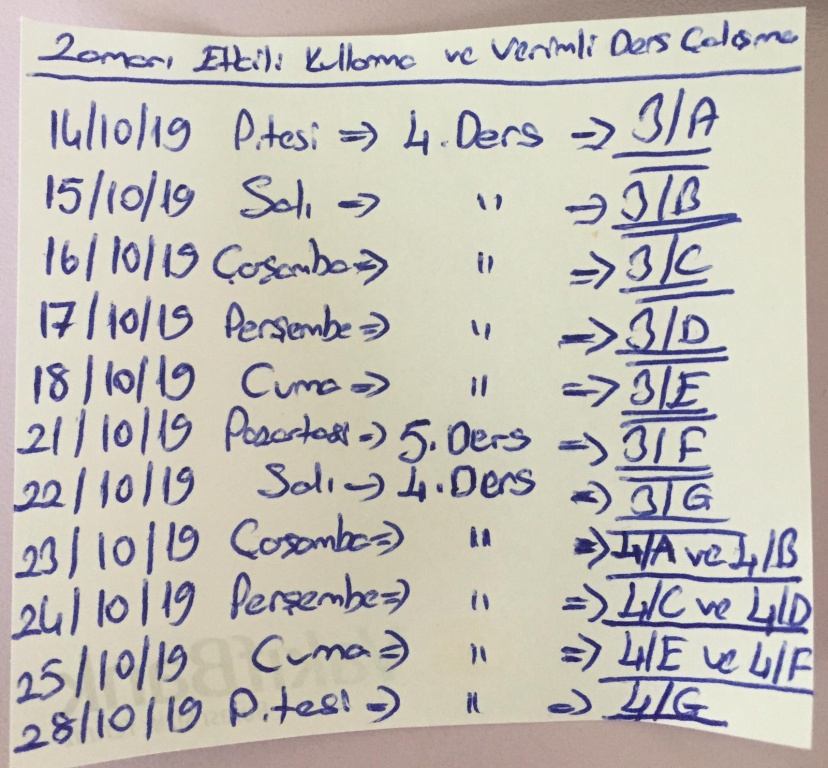 Zamanı Etkili Kullanma ve Verimli Ders Çalışma
14/10/19 P.tesi => 4.Ders => 3/A
15/10/19 Salı => " => 3/B
16/10/19 Çarşamba => " => 3/C
17/10/19 Perşembe => " => 3/D
18/10/19 Cuma => " => 3/E
21/10/19 Pazartesi => 5.Ders => 3/F
22/10/19 Salı => 4.Ders => 3/G
23/10/19 Çarşamba => " => 4/A ve 4/B
24/10/19 Perşembe => " => 4/C ve 4/D
25/10/19 Cuma => " => 4/E ve 4/F
28/10/19 P.tesi => " => 4/G
VakıfBank